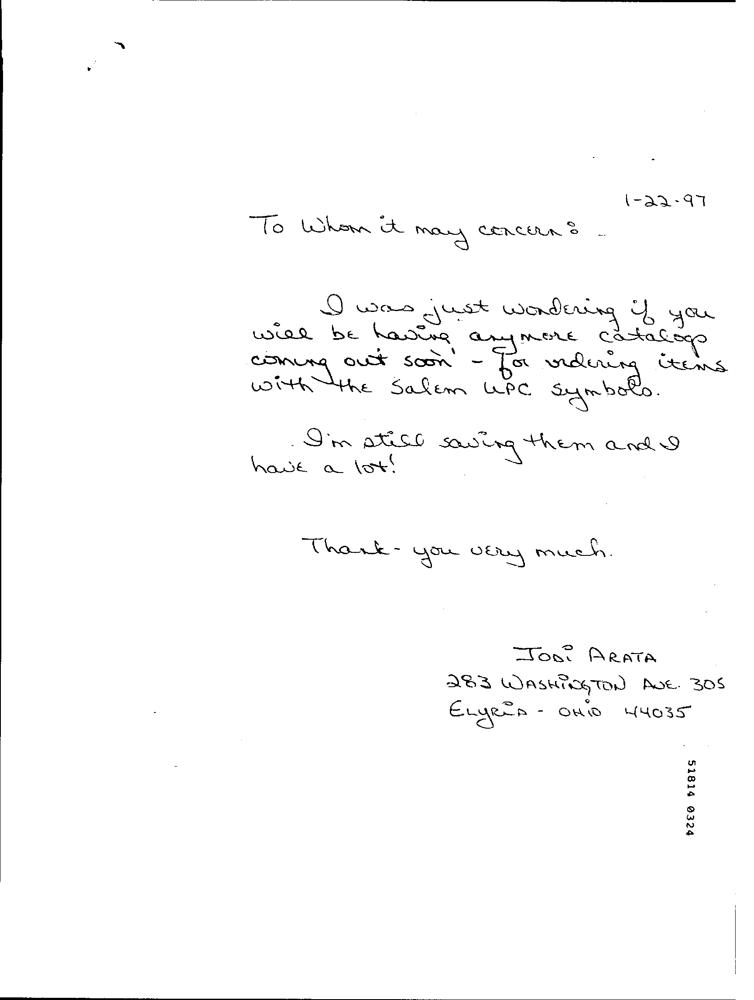 1-22-97
To Whom it may concern:
I was just wondering if you
will be having anymore catalogs
coming out soon - for ordering items
with the Salem UPC symbols.
I'm still saving them and I
have a lot!
Thank-you very much.
Jodi Arata
283 Washington Ave. 305
Elyria - Ohio 44035
51814 0324